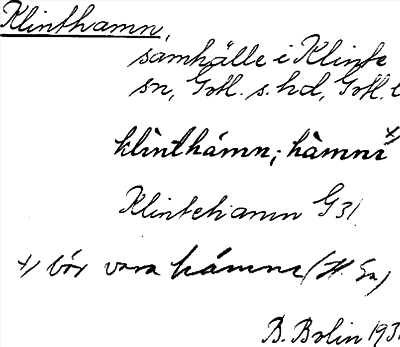 Klinthamn,
samhälle i Klinte
sn, Gotl. s. hd, Gotl. l
klìnthámn; hàmnı x)
Klintehamn G 31
x) bör vara hámnı (H. Gn)
B. Bolin 193